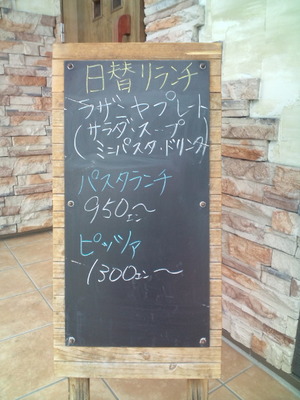 日替リランチ
ラザニヤプレート
(サラダ・スープ
ミニパスタ・ドリンク)
パスタランチ
950エン〜
ピッツァ
1300エン〜